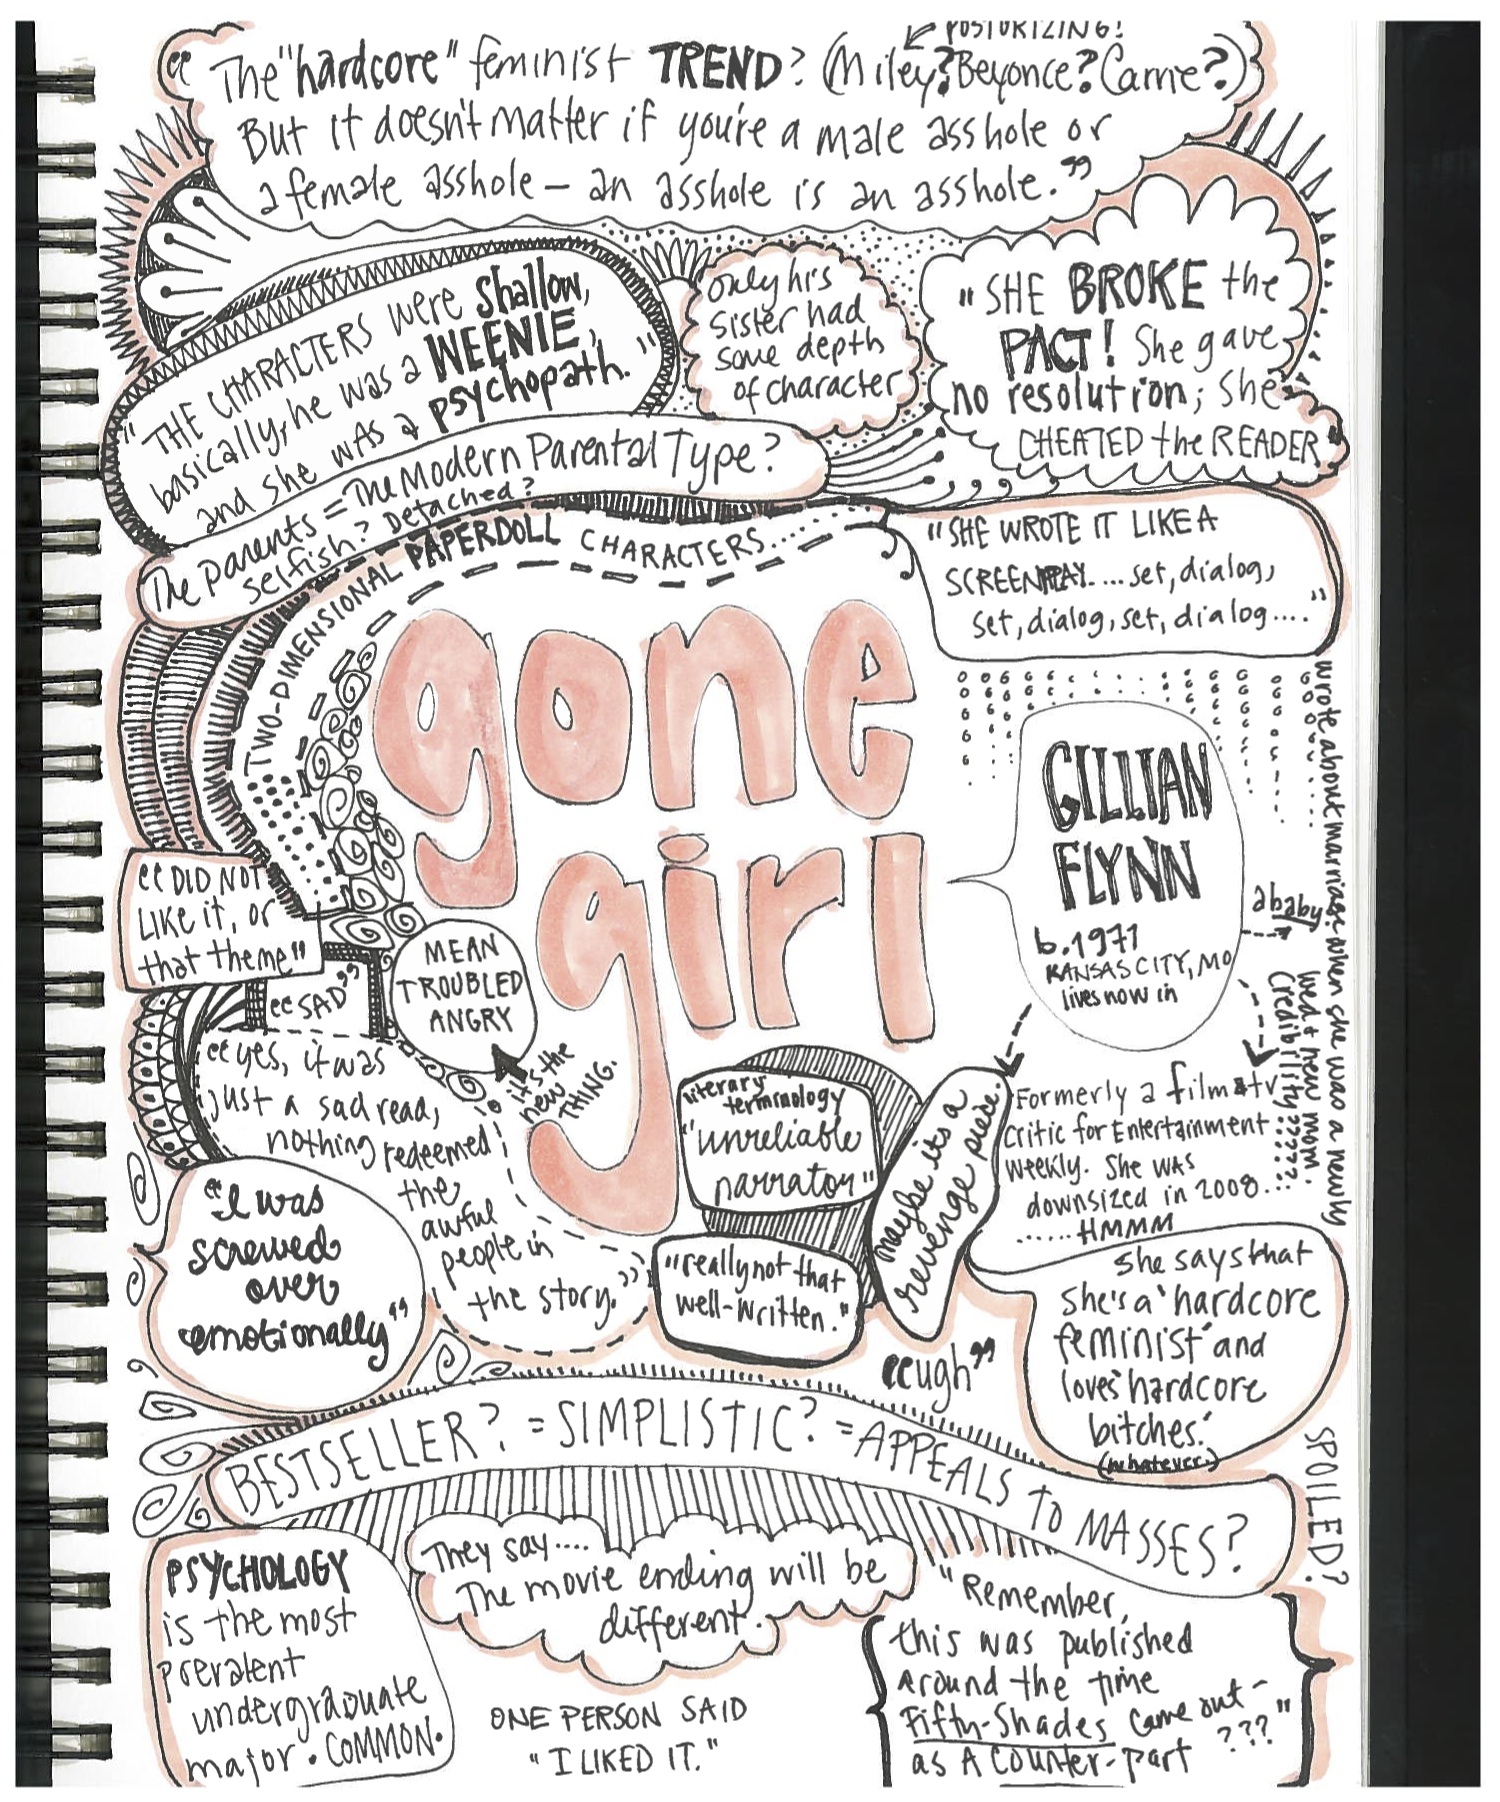 POSTURIZING!
"The "hardcore" feminist TREND? (Miley? Beyonce? Carrie?)
But it doesn't matter if you're a male asshole or
a female asshole – an asshole is an asshole."
"THE CHARACTERS were shallow,
basically, he was a WEENIE,
and she was a psychopath."
only his
sister had
some depth
of character
"SHE BROKE the
PACT! She gave
no resolution; she
CHEATED the READER"
The parents = The Modern Parental Type?
selfish? Detached?
TWO-DIMENSIONAL PAPERDOLL CHARACTERS....
"SHE WROTE IT LIKE A
SCREENPLAY.... set, dialog,
set, dialog, set, dialog...."
gone
girl
GILLIAN
FLYNN
b. 1971
KANSAS CITY, MO
lives now in
a baby
wrote about marriage when she was a newly
wed + new mom.
Credibility?????
"DID NOT
LIKE it, or
that theme"
"SAD"
MEAN
TROUBLED
ANGRY
it's the
new
THING.
"yes, it was
just a sad read,
nothing redeemed
the
awful
people in
the story."
literary
terminology
"unreliable
narrator"
maybe its a
revenge piece.
Formerly a film & tv
critic for Entertainment
weekly. She was
downsized in 2008...
...... HMMM
"I was
screwed
over
emotionally"
"really not that
well-written."
"ugh"
She says that
she's a "hardcore
feminist" and
loves "hardcore
bitches."
(whatever.)
BESTSELLER? = SIMPLISTIC? = APPEALS TO MASSES?
SPOILED?
PSYCHOLOGY
is the most
prevalent
undergraduate
major. COMMON.
They say....
The movie ending will be
different.
ONE PERSON SAID
"I LIKED IT."
"Remember,
this was published
around the time
Fifty-Shades came out –
as A counter-part ???"